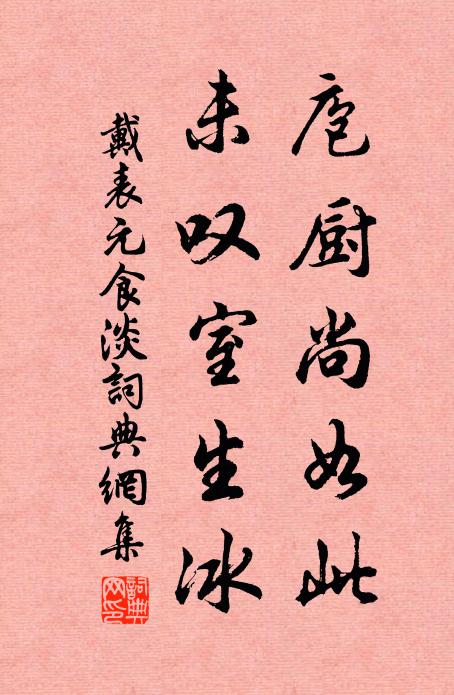 庖厨尚如此
未叹室生冰
戴表元食淡詞典網集
詞典网印